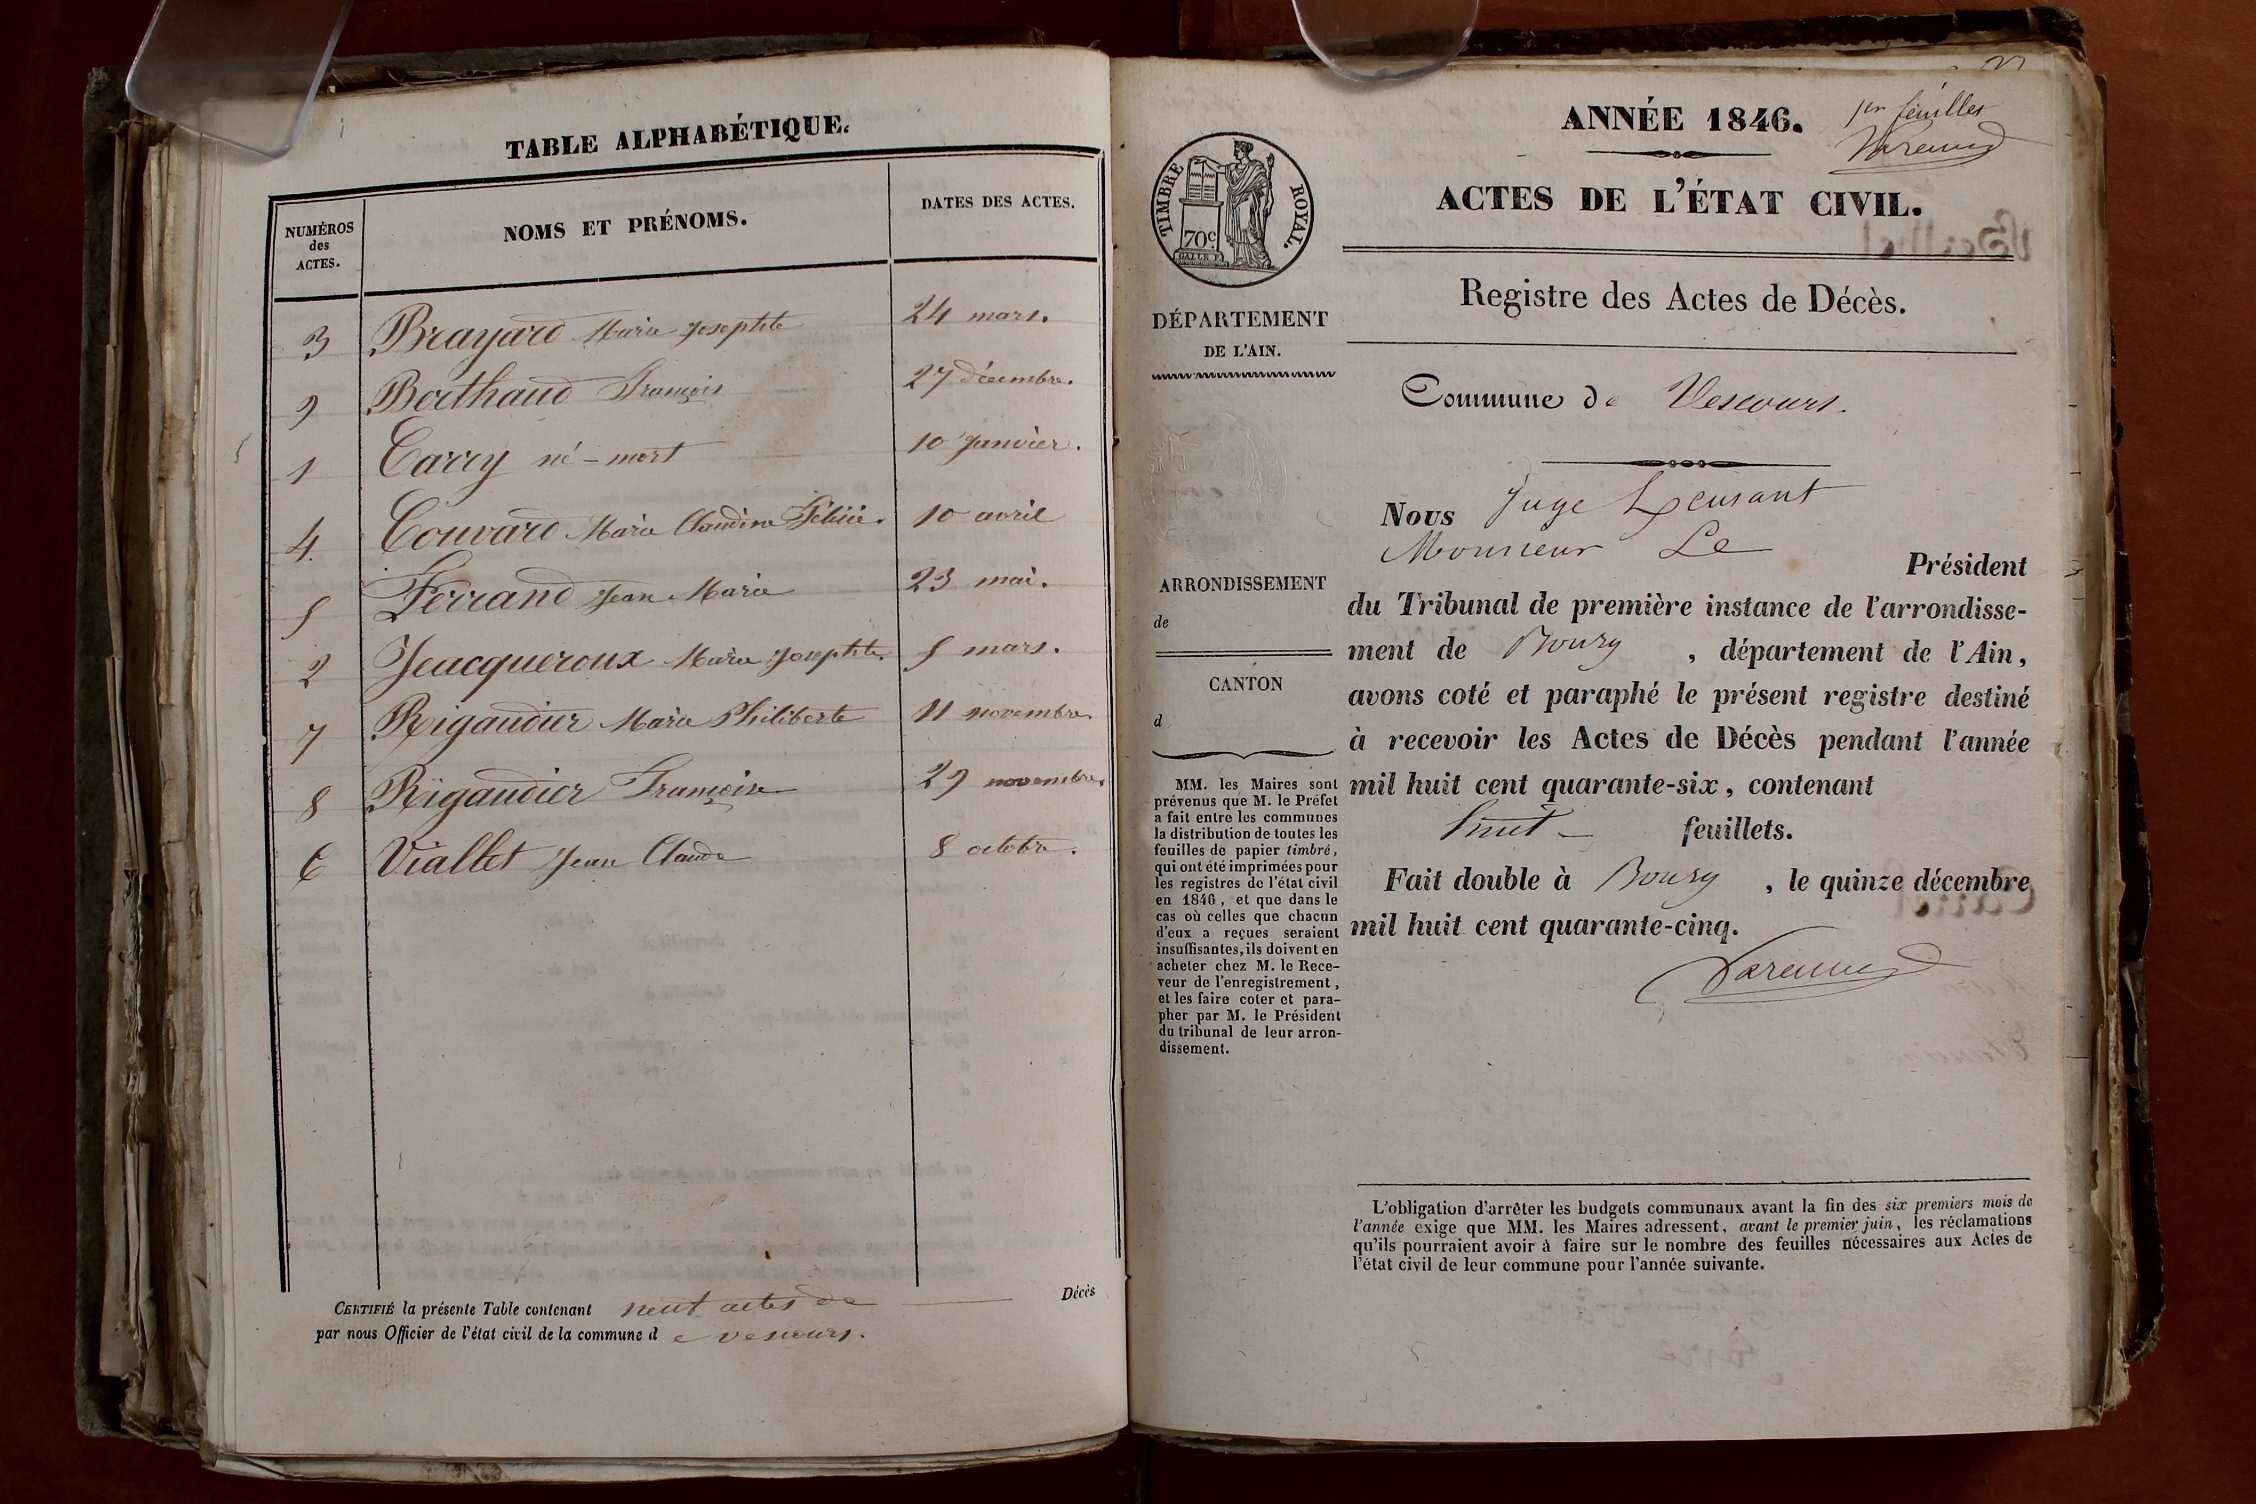 TABLE ALPHABÉTIQUE.
NUMÉROS des ACTES. NOMS ET PRÉNOMS. DATES DES ACTES.
3 Brayard Marie Josephte 24 mars.
9 Berthaud François 27 décembre.
1 Carry né-mort 10 Janvier.
4. Couvard Marie Claudine Félicie. 10 avril
5 Ferrand Jean Marie 23 mai.
2 Jeacqueroux Marie Josephte. 5 mars.
7 Rigaudier Marie Philiberte 11 novembre.
8 Rigaudier Françoise 29 novembre.
6 Viallet Jean Claude 8 octobre.
CERTIFIÉ la présente Table contenant neuf actes de Décès
par nous Officier de l'état civil de la commune de Vescours.
1er feuillet
ANNÉE 1846.
ACTES DE L'ÉTAT CIVIL.
TIMBRE ROYAL.
70c
Registre des Actes de Décès.
DÉPARTEMENT
DE L'AIN.
Commune de Vescours.
ARRONDISSEMENT
de
CANTON
d
MM. les Maires sont
prévenus que M. le Préfet
a fait entre les communes
la distribution de toutes les
feuilles de papier timbré,
qui ont été imprimées pour
les registres de l'état civil
en 1846, et que dans le
cas où celles que chacun
d'eux a reçues seraient
insuffisantes, ils doivent en
acheter chez M. le Rece-
veur de l'enregistrement,
et les faire coter et para-
pher par M. le Président
du tribunal de leur arron-
dissement.
Nous Juge
Monsieur Le
Président
du Tribunal de première instance de l'arrondisse-
ment de Bourg, département de l'Ain,
avons coté et paraphé le présent registre destiné
à recevoir les Actes de Décès pendant l'année
mil huit cent quarante-six, contenant
huit feuillets.
Fait double à Bourg, le quinze décembre
mil huit cent quarante-cinq.
L'obligation d'arrêter les budgets communaux avant la fin des six premiers mois de
l'année exige que MM. les Maires adressent, avant le premier juin, les réclamations
qu'ils pourraient avoir à faire sur le nombre des feuilles nécessaires aux Actes de
l'état civil de leur commune pour l'année suivante.